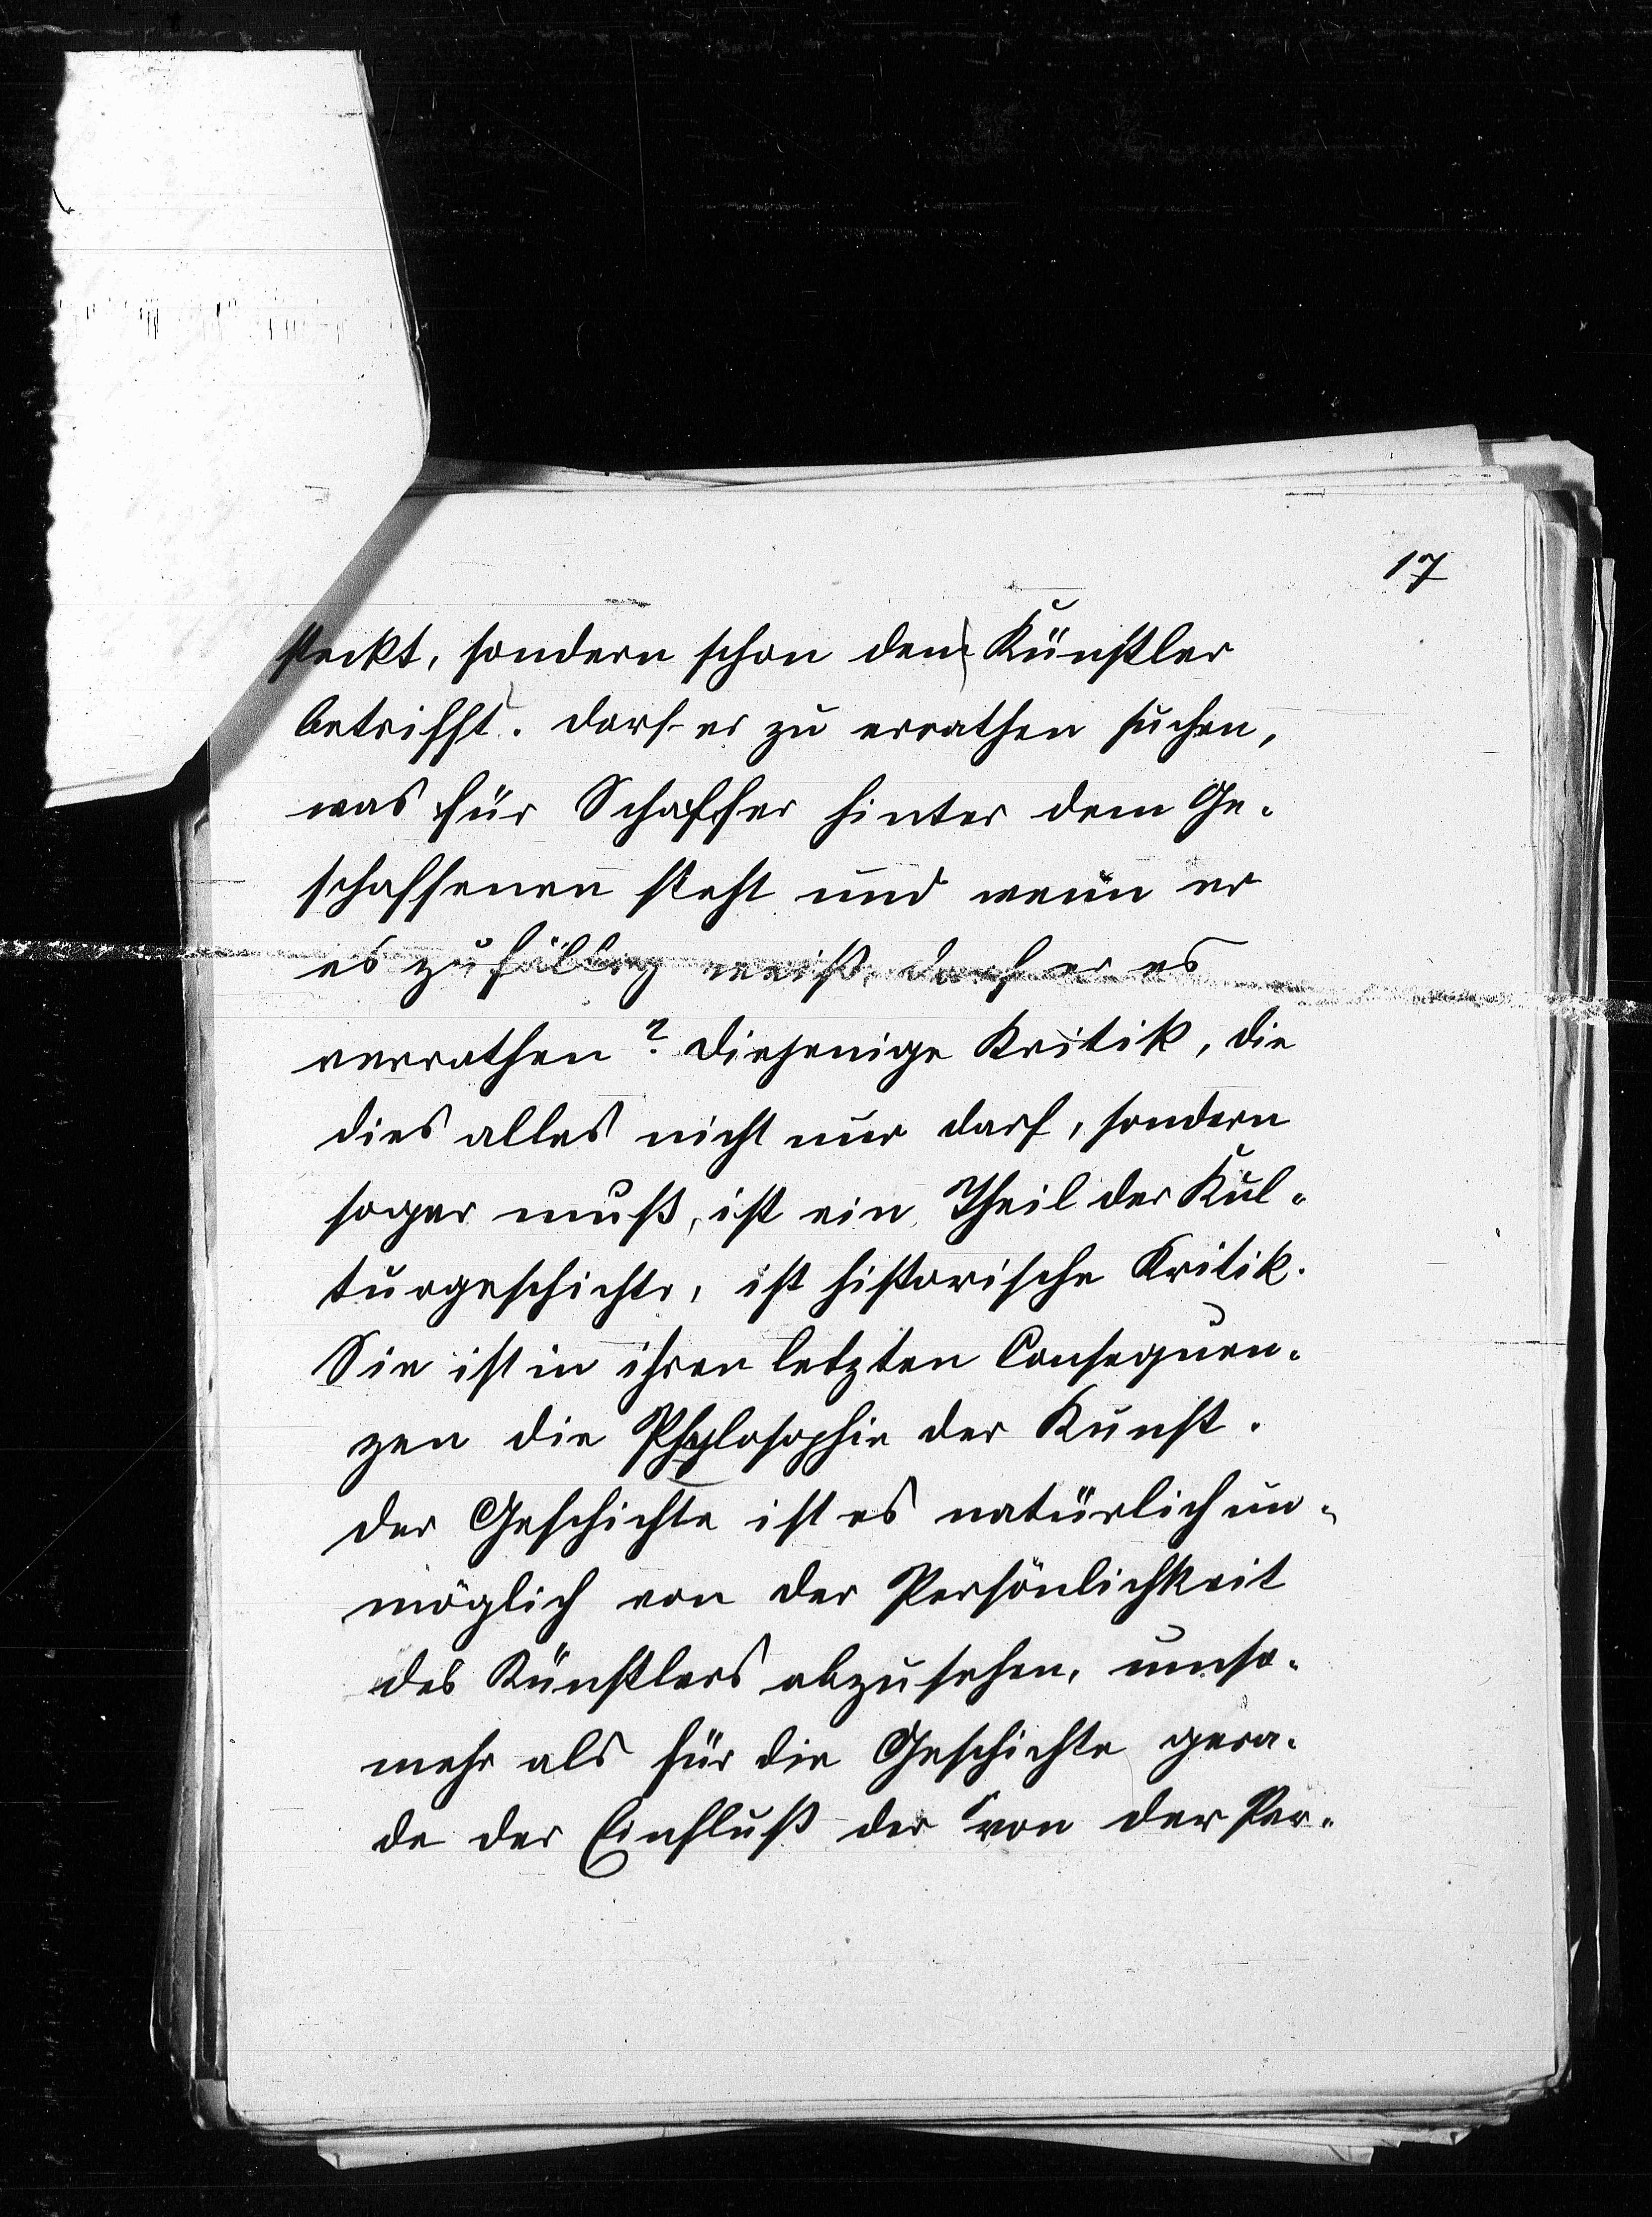 17
steckt, sondern schon den Künstler
betrifft. Darf er zu errathen suchen,
was für Schaffer hinter dem Ge-
schaffenen steht und wenn er
es zufällig weiß, darf er es
verrathen? Diejenige Kritik, die
dies alles nicht nur darf, sondern
sogar muß, ist ein Theil der Kul-
turgeschichte, ist historische Kritik.
Sie ist in ihren letzten Consequen-
zen die Phylosophie der Kunst.
Der Geschichte ist es natürlich un-
möglich von der Persönlichkeit
des Künstlers abzusehen, umso-
mehr als für die Geschichte gera-
de der Einfluß der von der Per-